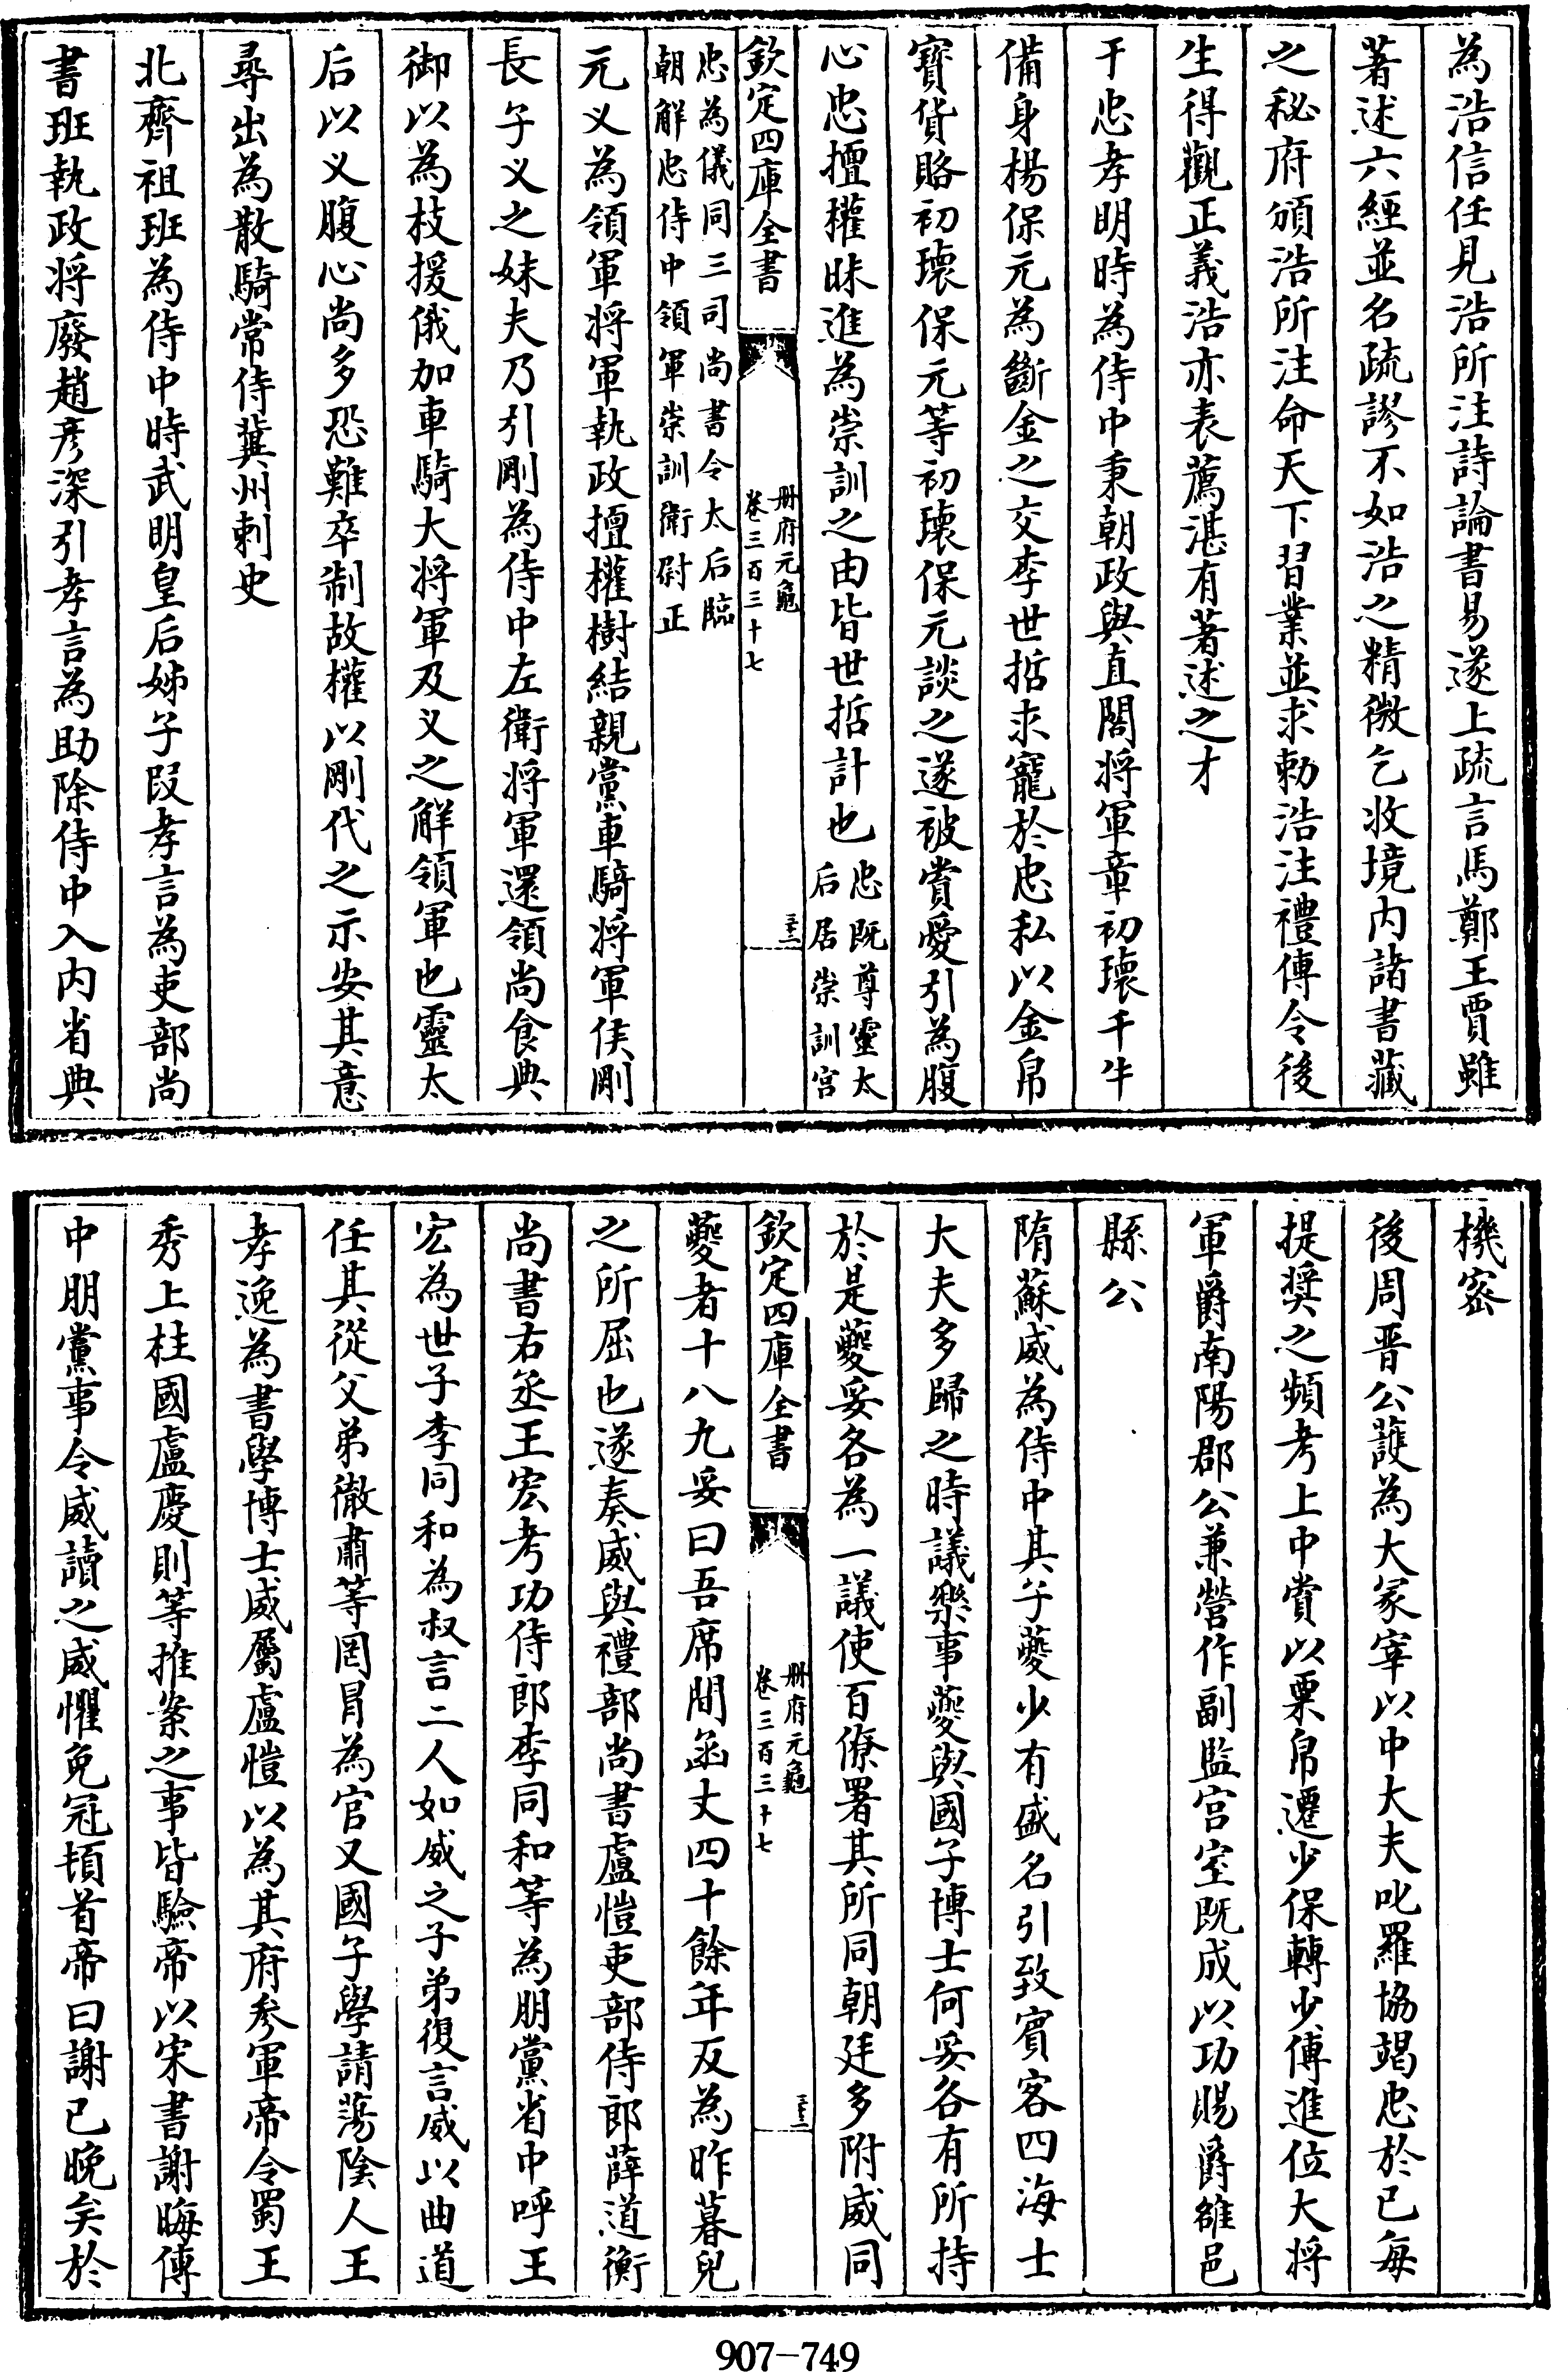 為浩信任見浩所注詩論書易遂上疏言馬鄭王賈雖
著述六經並名疏謬不如浩之精微乞收境内諸書藏
之秘府頒浩所注命天下習業並求勅浩注禮傳令後
生得觀正義浩亦表薦湛有著述之才
于忠孝明時為侍中秉朝政與直閤將軍章初瓌千牛
備身楊保元為斷金之交李世哲求寵於忠私以金帛
寳貨賂初瓌保元等初瓌保元談之遂被賞愛引為腹
心忠擅權昧進為崇訓之由皆世哲計也忠既尊靈太
后居崇訓宫
欽定四庫全書
册府元龜
卷三百三十七
三十二
忠為儀同三司尚書令太后臨
朝解忠侍中領軍崇訓衛尉正
元义為領軍將軍執政擅權樹結親黨車騎將軍侯剛
長子义之妹夫乃引剛為侍中左衛將軍還領尚食典
御以為枝援俄加車騎大將軍及义之解領軍也靈太
后以义腹心尚多恐難卒制故權以剛代之示安其意
尋出為散騎常侍冀州刺史
北齊祖珽為侍中時武明皇后姊子段孝言為吏部尚
書珽執政將廢趙彦深引孝言為助除侍中入内省典
機宻
後周晋公護為大冢宰以中大夫叱羅協竭忠於已每
提奬之頻考上中賞以粟帛遷少保轉少傅進位大將
軍爵南陽郡公兼營作副監宫室既成以功賜爵雒邑
縣公
隋蘇威為侍中其子夔少有盛名引致賓客四海士
大夫多歸之時議樂事夔與國子博士何妥各有所持
於是夔妥各為一議使百僚署其所同朝廷多附威同
欽定四庫全書
册府元龜
卷三百三十七
三十三
夔者十八九妥曰吾席間函丈四十餘年反為昨暮兒
之所屈也遂奏威與禮部尚書盧愷吏部侍郎薛道衡
尚書右丞王宏考功侍郎李同和等為朋黨省中呼王
宏為世子李同和為叔言二人如威之子弟復言威以曲道
任其從父弟徹肅等罔冒為官又國子學請蕩隂人王
孝逸為書學博士威屬盧愷以為其府參軍帝令蜀王
秀上柱國盧慶則等推案之事皆驗帝以宋書謝晦傳
中朋黨事令威讀之威懼免冠頓首帝曰謝已晩矣於
907-749